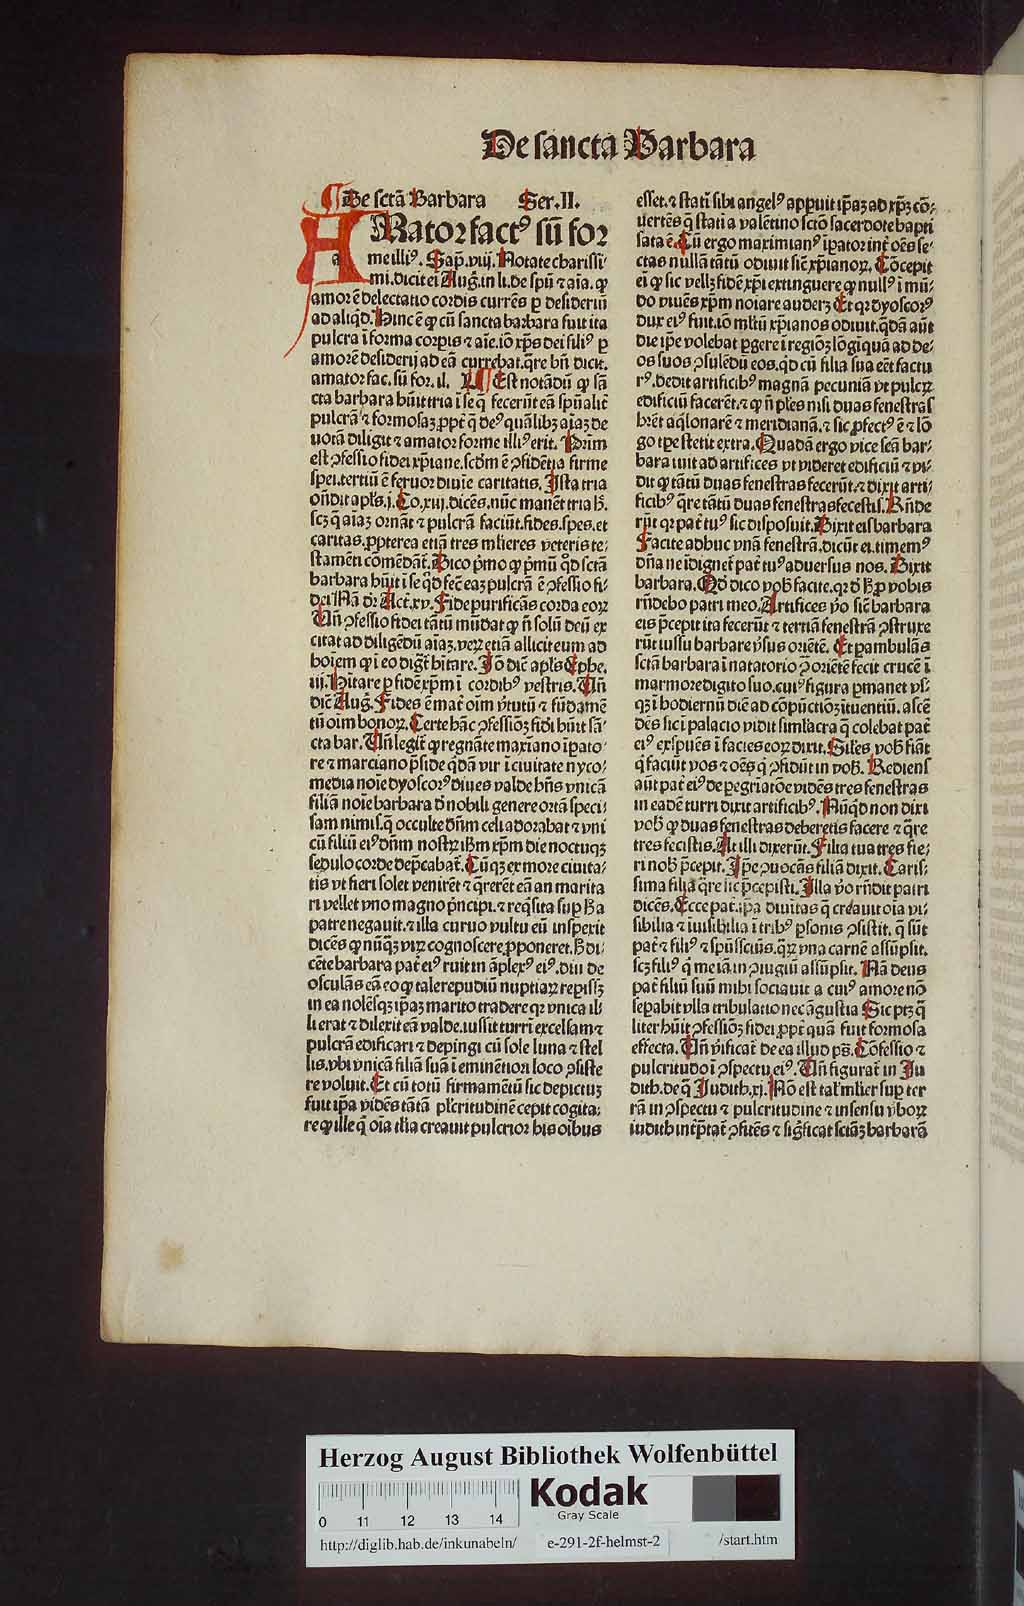 De sancta Barbara
De sctā Barbara Ser.II.
AMator factꝰ sū for
me illiꝰ. Sap. viij. Notate charissi
mi. dicit ei Aug. in li. de spū ⁊ aīa. ꝙ
amor ē delectatio cordis currēs ꝑ desideriū
ad aliqd. Hinc ē ꝙ cū sancta barbara fuit ita
pulcra ī forma corpis ⁊ aīe. iō xp̄s dei filiꝰ ꝑ
amorē desiderij ad eā currebat. q̄re bn̄ dicit.
amator fac. sū for. il. Est notādū ꝙ sā
cta barbara hūit tria ī se q̄ fecerūt eā spūalit̄
pulcrā ⁊ formosaꝫ. ꝓpt̄ q̄ deꝰ quālibꝫ aīaꝫ de
uotā diligit ⁊ amator forme illiꝰ erit. Primū
est ꝓfessio fidei xp̄iane. scdm ē ꝯfidētia firme
spei. tertiū ē feruor diuīe caritatis. Ista tria
on̄dit apl̄s. j. Co. xiij. dicēs. nūc manēt tria h̄.
scꝫ q̄ aīaꝫ ornāt ⁊ pulcrā faciūt. fides. spes. et
caritas. ꝓpterea etiā tres mlieres veteris te-
stamēti comēdāt̄. Dico p̄mo ꝙ p̄mū qd sctā
barbara hūit ī se qd fec̄ eaꝫ pulcrā ē ꝓfessio fi-
dei Nā dr̄ Act. xv. Fide purificās corda eoꝝ
Un̄ ꝓfessio fidei tātū mūdat ꝙ n̄ solū deū ex
citat ad diligēdū aīaꝫ. veꝝ etiā allicit eum ad
hoīem ꝙ ī eo digt̄ hitare. Iō dic̄ apl̄s Ephe.
iij. Hitare ꝑ fidē xp̄m ī cordibꝰ vestris. Un̄
dic̄ Aug. Fides ē mat̄ oīm v̄tutū ⁊ fūdamē
tū oīm bonoꝝ. Certe hāc ꝓfessioꝫ fidi hūit sā-
cta bar. Un̄ legit̄ ꝙ regnāte maxīano īpato-
re ⁊ marciano p̄side qdā vir ī ciuitate nyco-
media noīe dyoscorꝰ diues valde hn̄s vnicā
filiā noīe barbara d̄ nobili genere ortā speci-
sam nimis. q̄ occulte dn̄m celi adorabat ⁊ vni
cū filiū eiꝰ dn̄m nostꝝ ihm xp̄m die noctuqꝫ
sedulo corde dep̄cabat̄. Cūqꝫ ex more ciuita-
tis vt fieri solet venirēt ⁊ q̄rerēt eā an marita
ri vellet vno magno p̄ncipi. ⁊ reqsita sup h̄ a
patre negauit. ⁊ illa curuo vultu eū inspexit
dicēs ꝙ nūqꝫ viꝝ cognoscere ꝓponeret. h̄ di-
cēte barbara pat̄ eiꝰ ruit in āplexꝰ eiꝰ. diu de
osculās eā eo ꝙ tale repudiū nuptiaꝝ repissꝫ
in ea nolēsqꝫ ip̄aꝫ marito tradere qꝛ vnica il-
li erat ⁊ dilexit eā valde. iussit turri excelsam ⁊
pulcrā edificari ⁊ depingi cū sole luna ⁊ stel
lis. vbi vnicā filiā suā ī eminētiori loco ꝯsiste
re voluit. Et cū totū firmamētū sic depictuꝫ
fuit ip̄a vidēs tātā pl̄critudinē cepit cogita-
re ꝙ ille q̄ oīa ilia creauit pulcrior his oībus
esset. ⁊ statī sibi angelꝰ appuit ip̄aꝫ ad xp̄ꝫ cō-
uertēs q̄ statī a valētino sctō sacerdote bapti
sata ē. Cū ergo maximianꝰ īpator int̄ oēs se-
ctas nullā tātū odiuit sic̄ xp̄ianoꝝ. Cōcepit
ei ꝙ sic vellꝫ fidē xp̄i extinguere ꝙ nullꝰ ī mū-
do viuēs xp̄m noīare auderꝫ Et qꝛ dyoscorꝰ
dux eiꝰ fuit. iō mltū xp̄ianos odiuit. qdā aūt
die ip̄e volebat ꝑgere ī regioꝫ lōgīquā ad de-
os suos ꝯsulēdū eos. qd cū filia sua eēt factu
rꝰ. dedit artificibꝰ magnā pecuniā vt pulcꝝ
edificiū facerēt. ⁊ ꝙ n̄ pl̄es nisi duas fenestras
hr̄et aqlonarē ⁊ meridianā. ⁊ sic ꝓfectꝰ ē ⁊ lō
go tp̄e stetit extra. Quadā ergo vice sctā bar-
bara iuit ad artifices vt videret edificiū ⁊ vi-
dit ꝙ tātū duas fenestras fecerūt. ⁊ dixit arti-
ficibꝰ q̄re tātū duas fenestras fecestis. Rn̄de
rūt qꝛ pat̄ tuꝰ sic disposuit. Dixit eis barbara
Facite adhuc vnā fenestrā. dicūt ei. timemꝰ
dn̄a ne īdignet̄ pat̄ tuꝰ aduersus nos. Dixit
barbara. Qd dico vob̄ facite. qꝛ d̄ h̄ ꝓ vobis
rn̄debo patri meo. Artifices v̄o sic̄ barbara
eis p̄cepit ita fecerūt ⁊ tertiā fenestrā ꝯstruxe
rūt iussu barbare v̄sus oriētē. Et ꝑambulās
sctā barbara ī natatorio ꝯ̄ oriētē fecit crucē ī
marmore digito suo. cuiꝰ figura ꝑmanet vs-
qꝫ ī hodiernū diē ad cōpūctioꝫ ītuentiū. ascē
dēs sic ī palacio vidit simlacra q̄ colebat pat̄
eiꝰ exspuēs ī facies eoꝝ dixit. Siles vob̄ fiāt
q̄ faciūt vos ⁊ oēs q̄ ꝯfidūt in vob̄. Rediens
aūt pat̄ eiꝰ de peg̊riatōe vidēs tres fenestras
in eadē turri dixit artificibꝰ. Nūqd non dixi
vob̄ ꝙ duas fenestras deberetis facere ⁊ q̄re
tres fecistis. At illi dixerūt. Filia tua tres fie-
ri nob̄ p̄cepit. Ip̄e ꝯuocās filiā dixit. Caris-
sima filia q̄re sic p̄cepisti. Illa v̄o rn̄dit patri
dicēs. Ecce pat̄. ip̄a diuītas q̄ creauit oīa vi-
sibilia ⁊ īuisibilia ī tribꝰ ꝑsonis ꝯsistit. q̄ sūt
pat̄ ⁊ filiꝰ ⁊ spūssctūs. q̄ꝝ vna carnē assūpsit.
scꝫ filiꝰ q̄ me iā in ꝯiugiū assūpsit. Nā deus
pat̄ filiū suū mihi sociauit a cuiꝰ amore nō
sepabit vlla tribulatio nec āgustia Sic ptꝫ q̄
liter hūit ꝓfessioꝫ fidei ꝓpt̄ quā fuit formosa
effecta. Un̄ v̄ificat̄ de ea illud ps̄. Cōfessio ⁊
pulcritudo ī ꝯspectu eiꝰ. Un̄ figurat̄ in Ju
dith. de q̄ Judith. xj. Nō est tal̄ mlier sup ter
rā in ꝯspectu ⁊ pulcritudine ⁊ in sensu v̄boꝝ
iudith int̄p̄tat̄ ꝯfitēs ⁊ sigficat sctāꝫ barbarā
Herzog August Bibliothek Wolfenbüttel
0 11 12 13 14
Kodak
Gray Scale
http://diglib.hab.de/inkunabeln/ e-291-2f-helmst-2 /start.htm